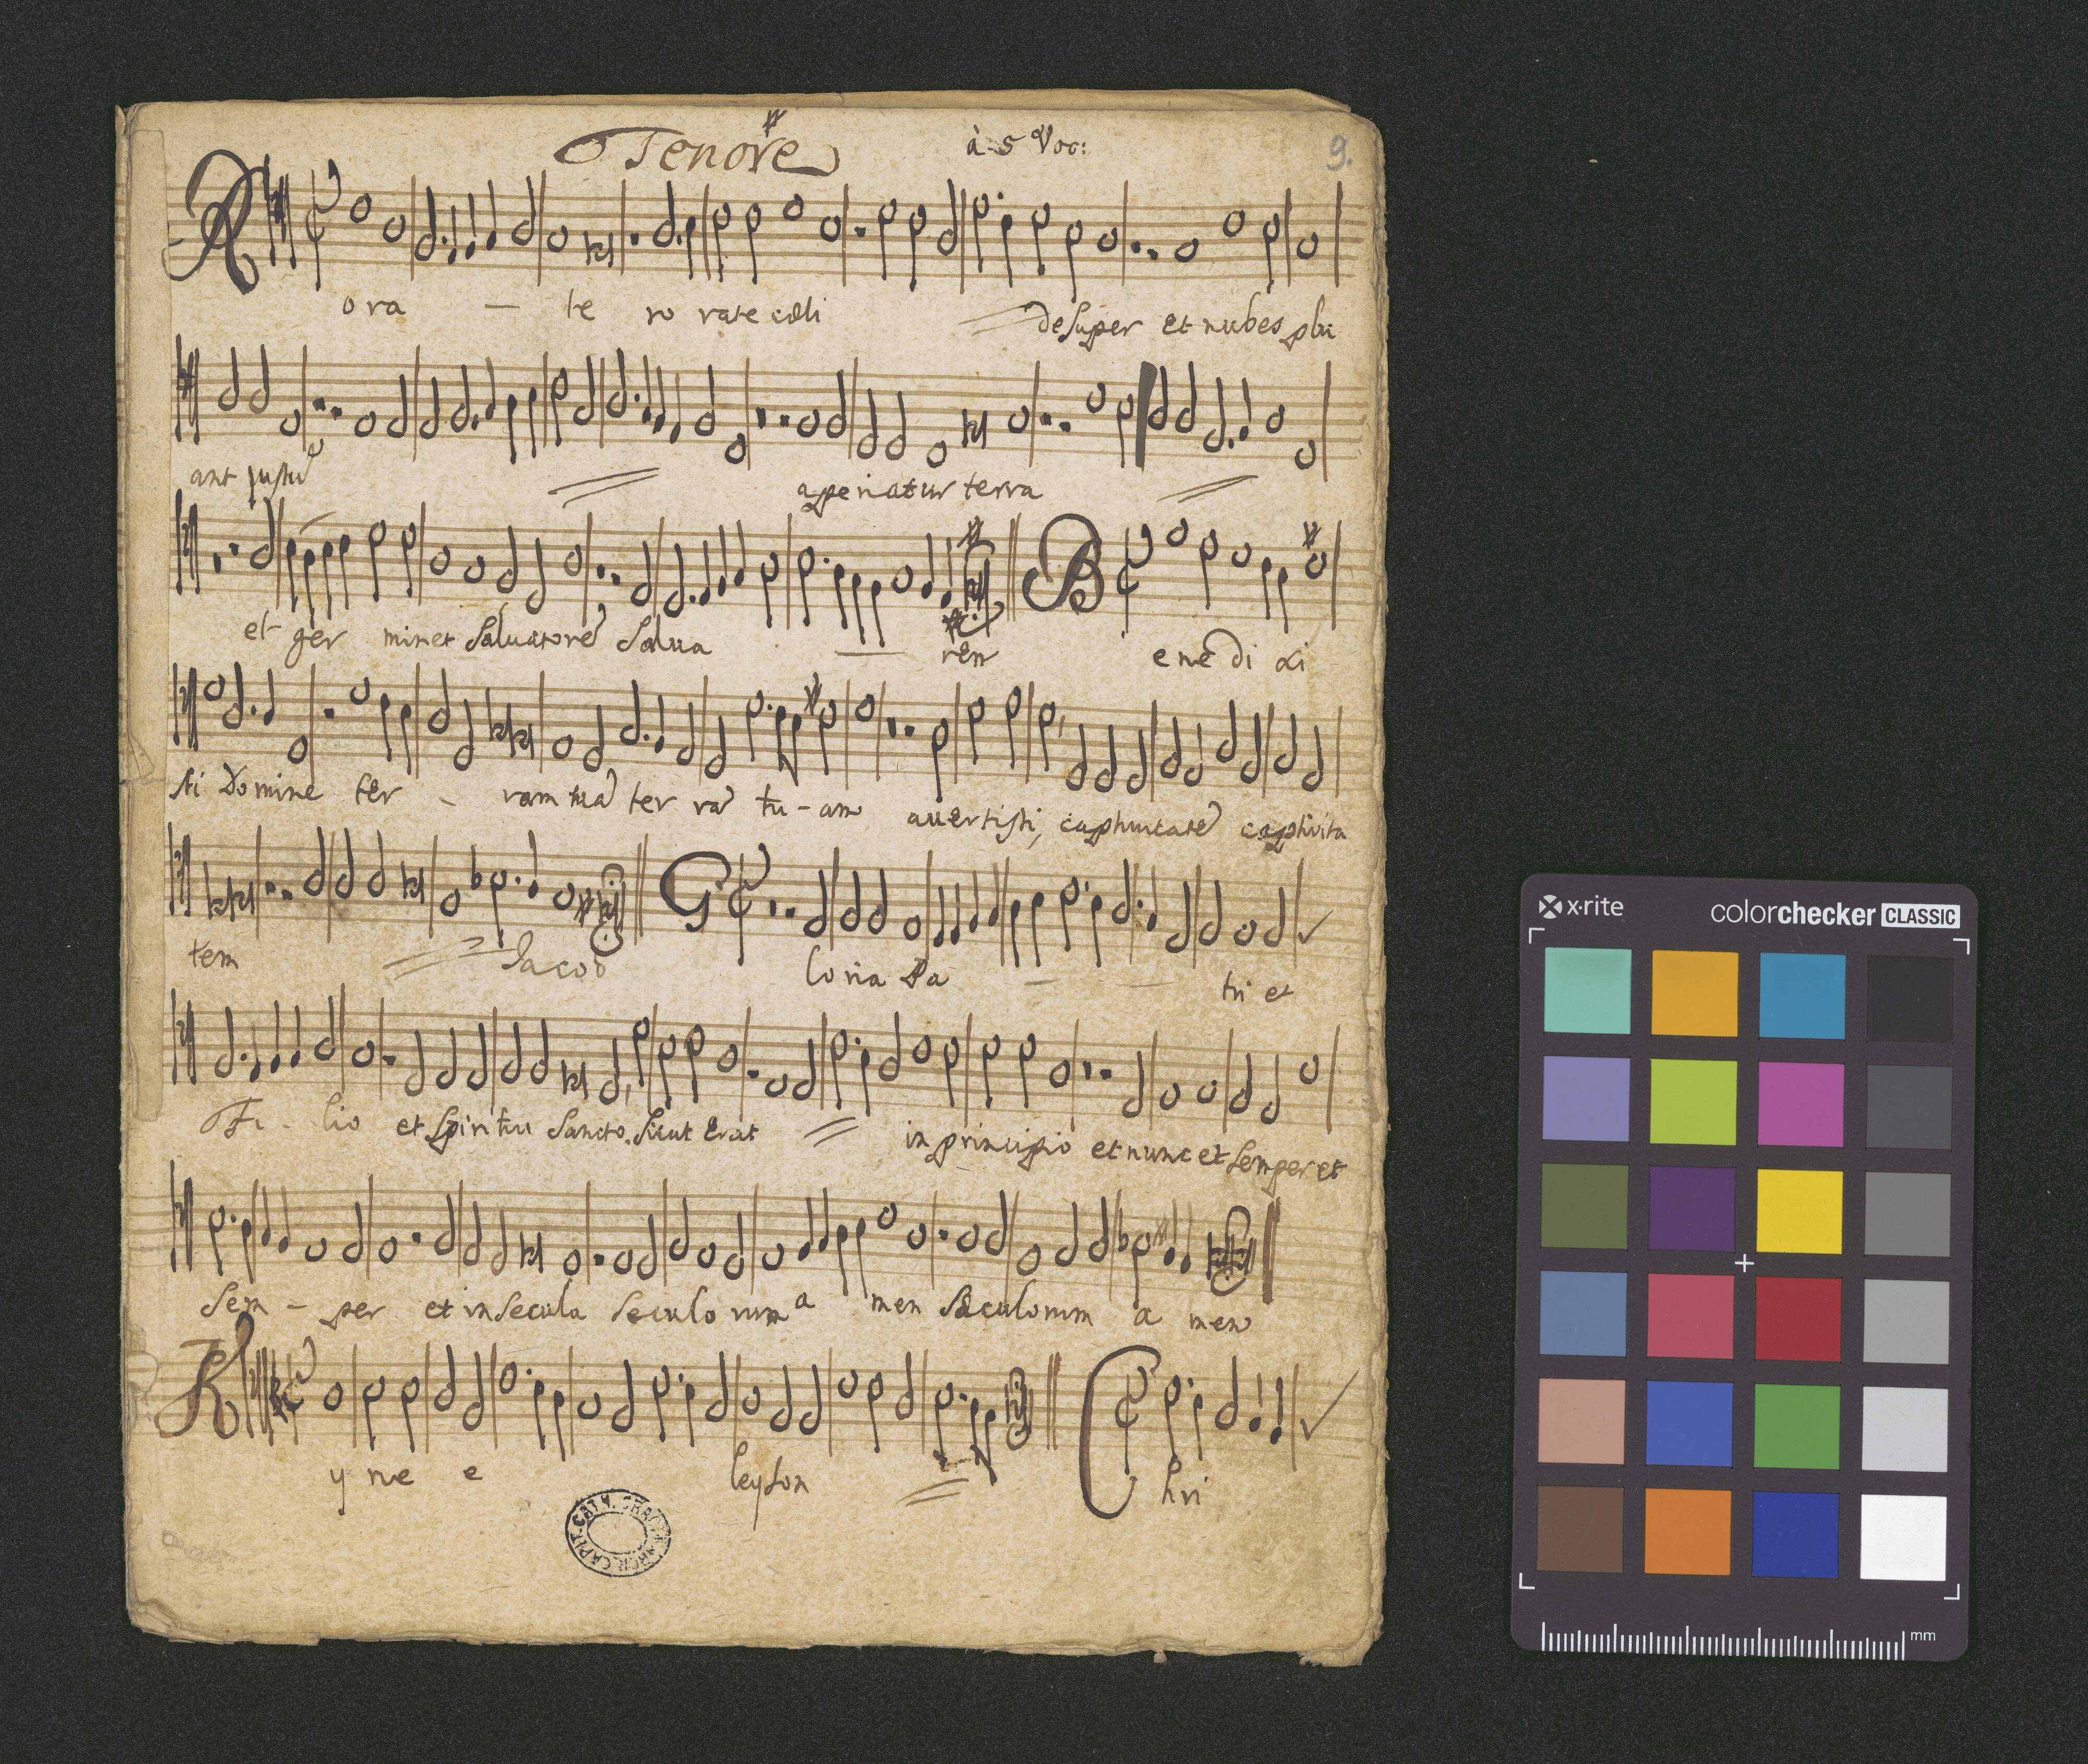 Tenore à 5 Voc: 9.
R ora — te ro rate cœli desuper et nubes plu
ant justū aperiatur terra
et ger minet Saluatorē Salua — rem B ene di xi
sti Domine ter - ram tuā ter rā tu - am auertisti, captiuitatē captivita
tem Jacob G loria Pa — — tri et
Fi - lio et Spiritui Sancto. Sicut Erat in principio et nunc et Semper et
Sem - per et in Secula Seculo rum a men Sæculorum a men
K y rie e leyson C hri
x·rite colorchecker CLASSIC
mm